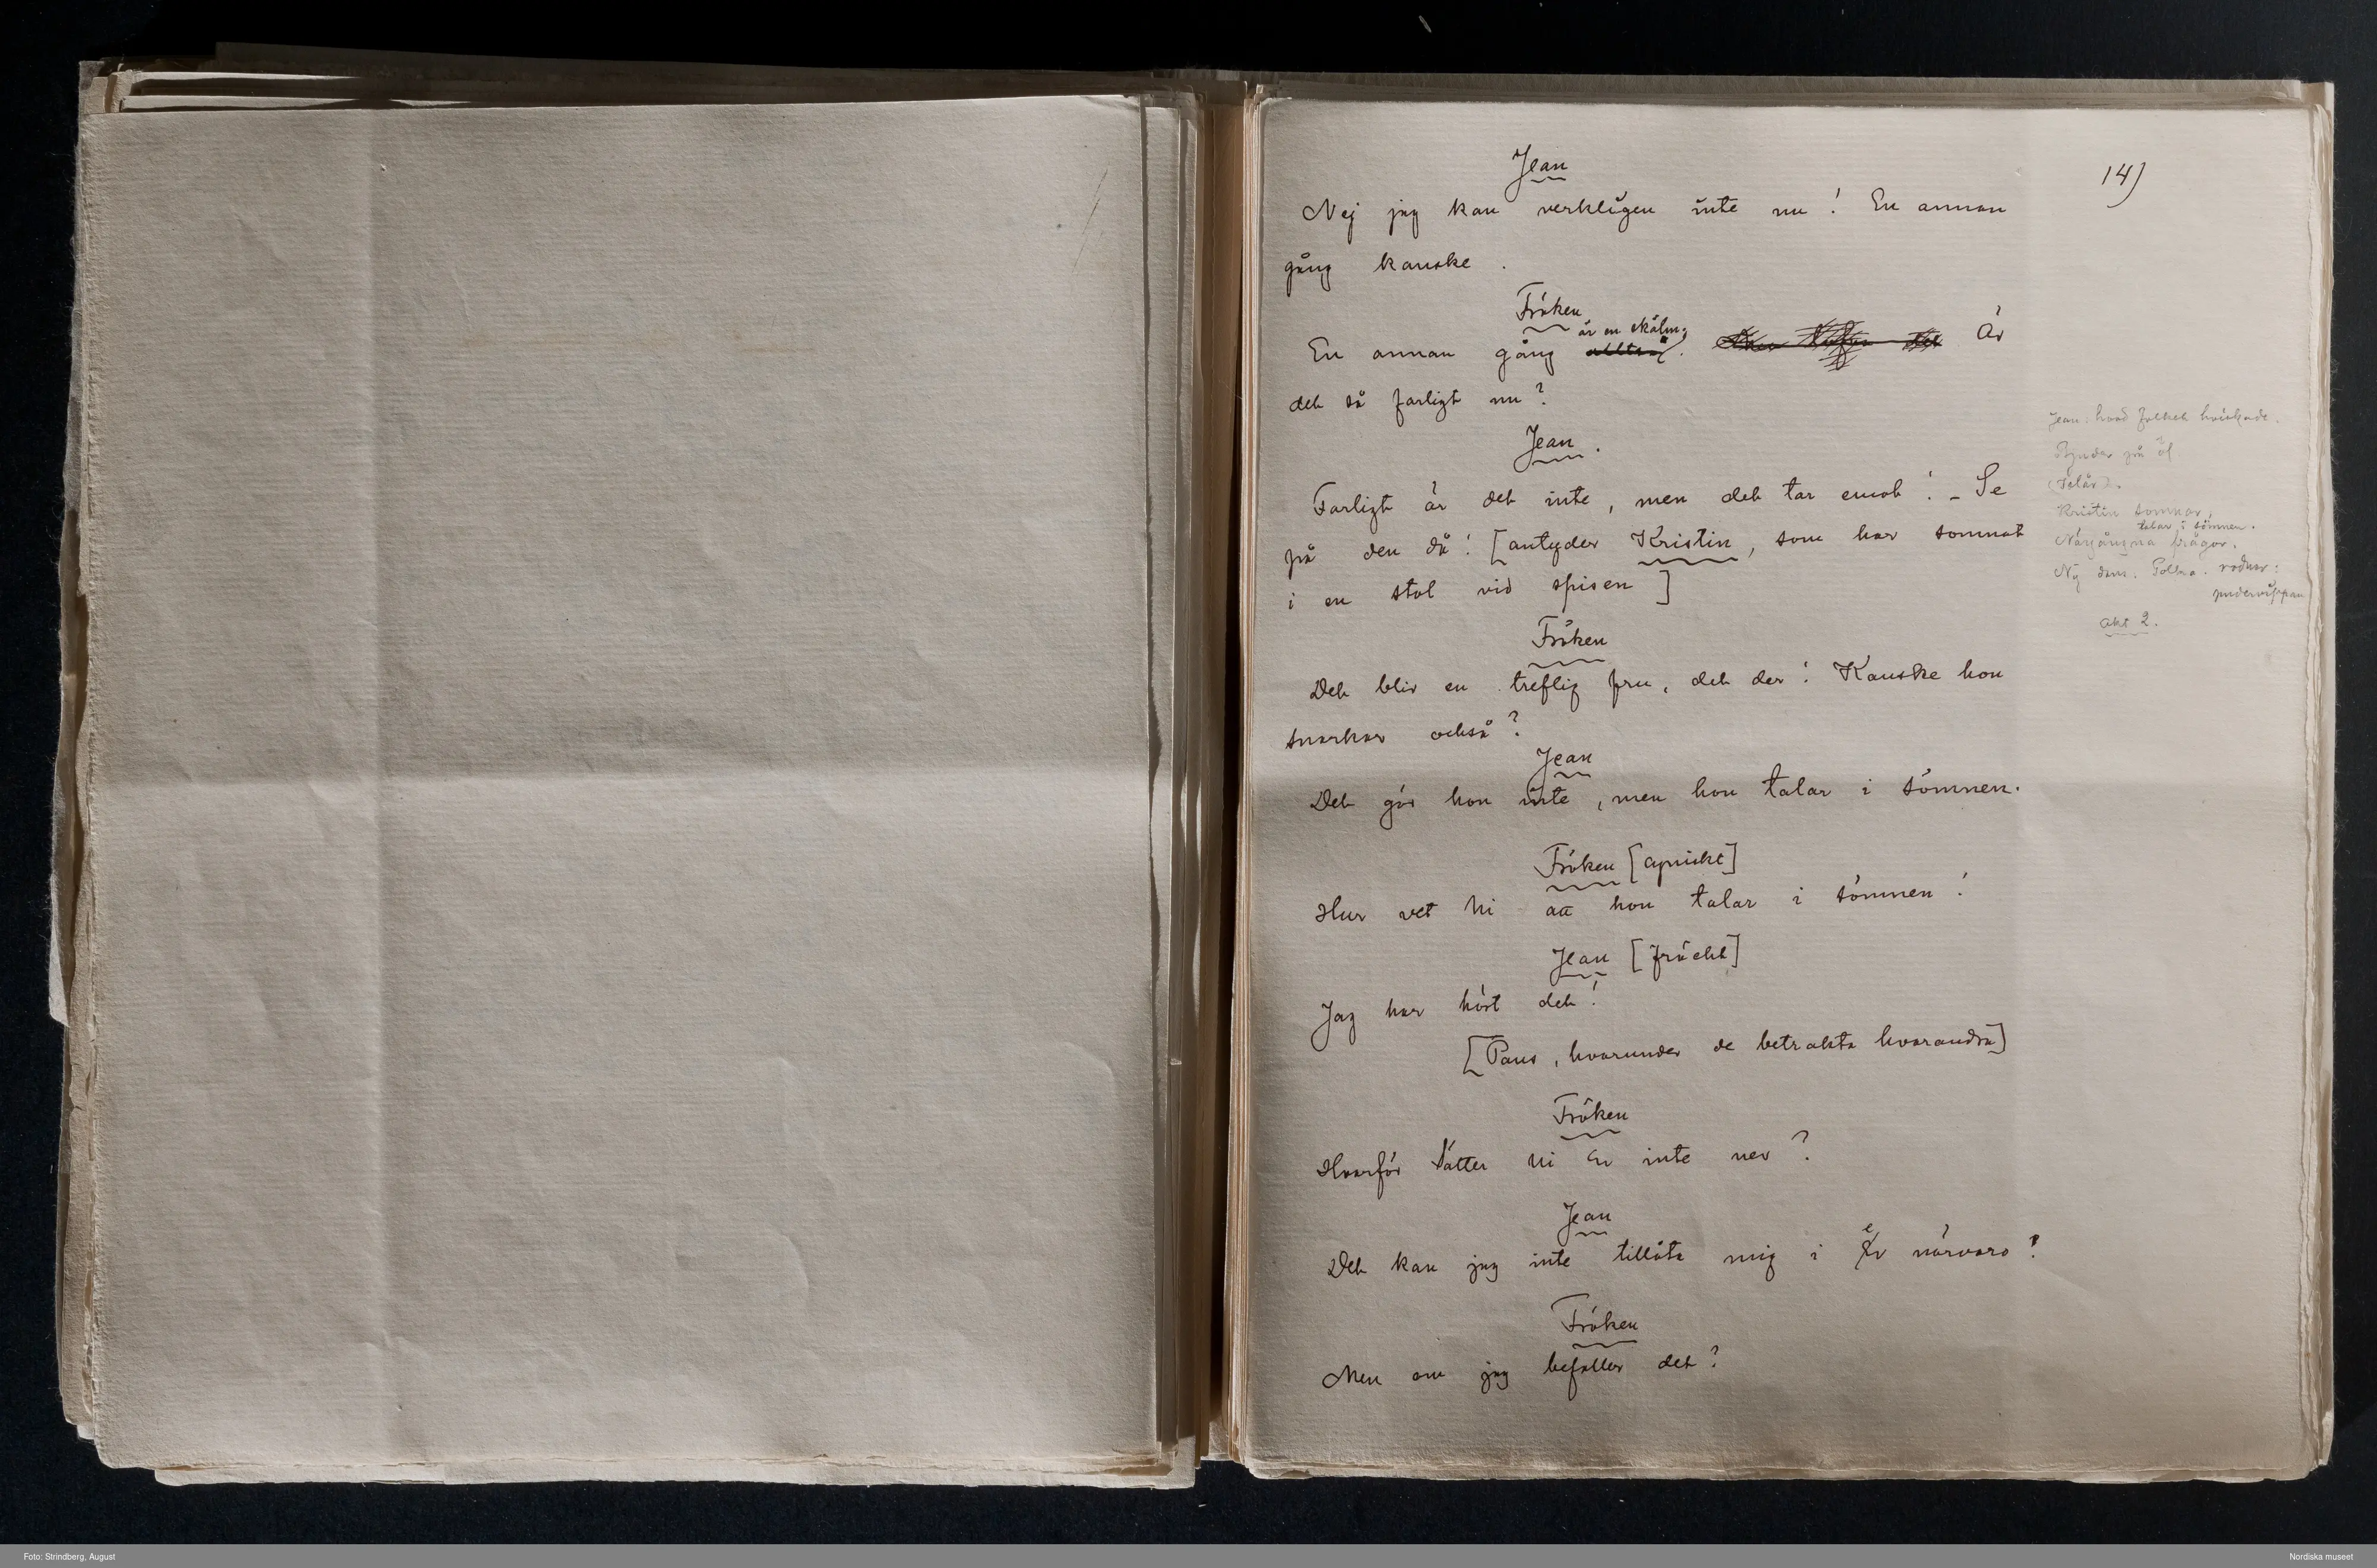 14)
Jean
Nej jag kan verkligen inte nu! En annan
gång kanske.
Fröken
är en skälm;
En annan gång alltså. Är
det så farligt nu?
Jean.
Farligt är det inte, men det tar emot! – Se
på den då! [antyder Kristin, som har somnat
i en stol vid spisen]
Fröken
Det blir en treflig fru, det der! Kanske hon
snarkar också?
Jean
Det gör hon inte, men hon talar i sömnen.
Fröken [cyniskt]
Hur vet Ni att hon talar i sömnen!
Jean [fräckt]
Jag har hört det!
[Paus, hvarunder de betrakta hvarandra]
Fröken
Hvarför sätter Ni Er inte ner?
Jean
Det kan jag inte tillåta mig i Er närvaro?
Fröken
Men om jag befaller det?
Jean: hvad folket hviskade.
Bjuder på öl
Kristin somnar,
talar i sömnen.
Närgångna frågor.
Ny dans. Polka. rodnar:
pudervippan
akt 2.
Foto: Strindberg, August
Nordiska museet